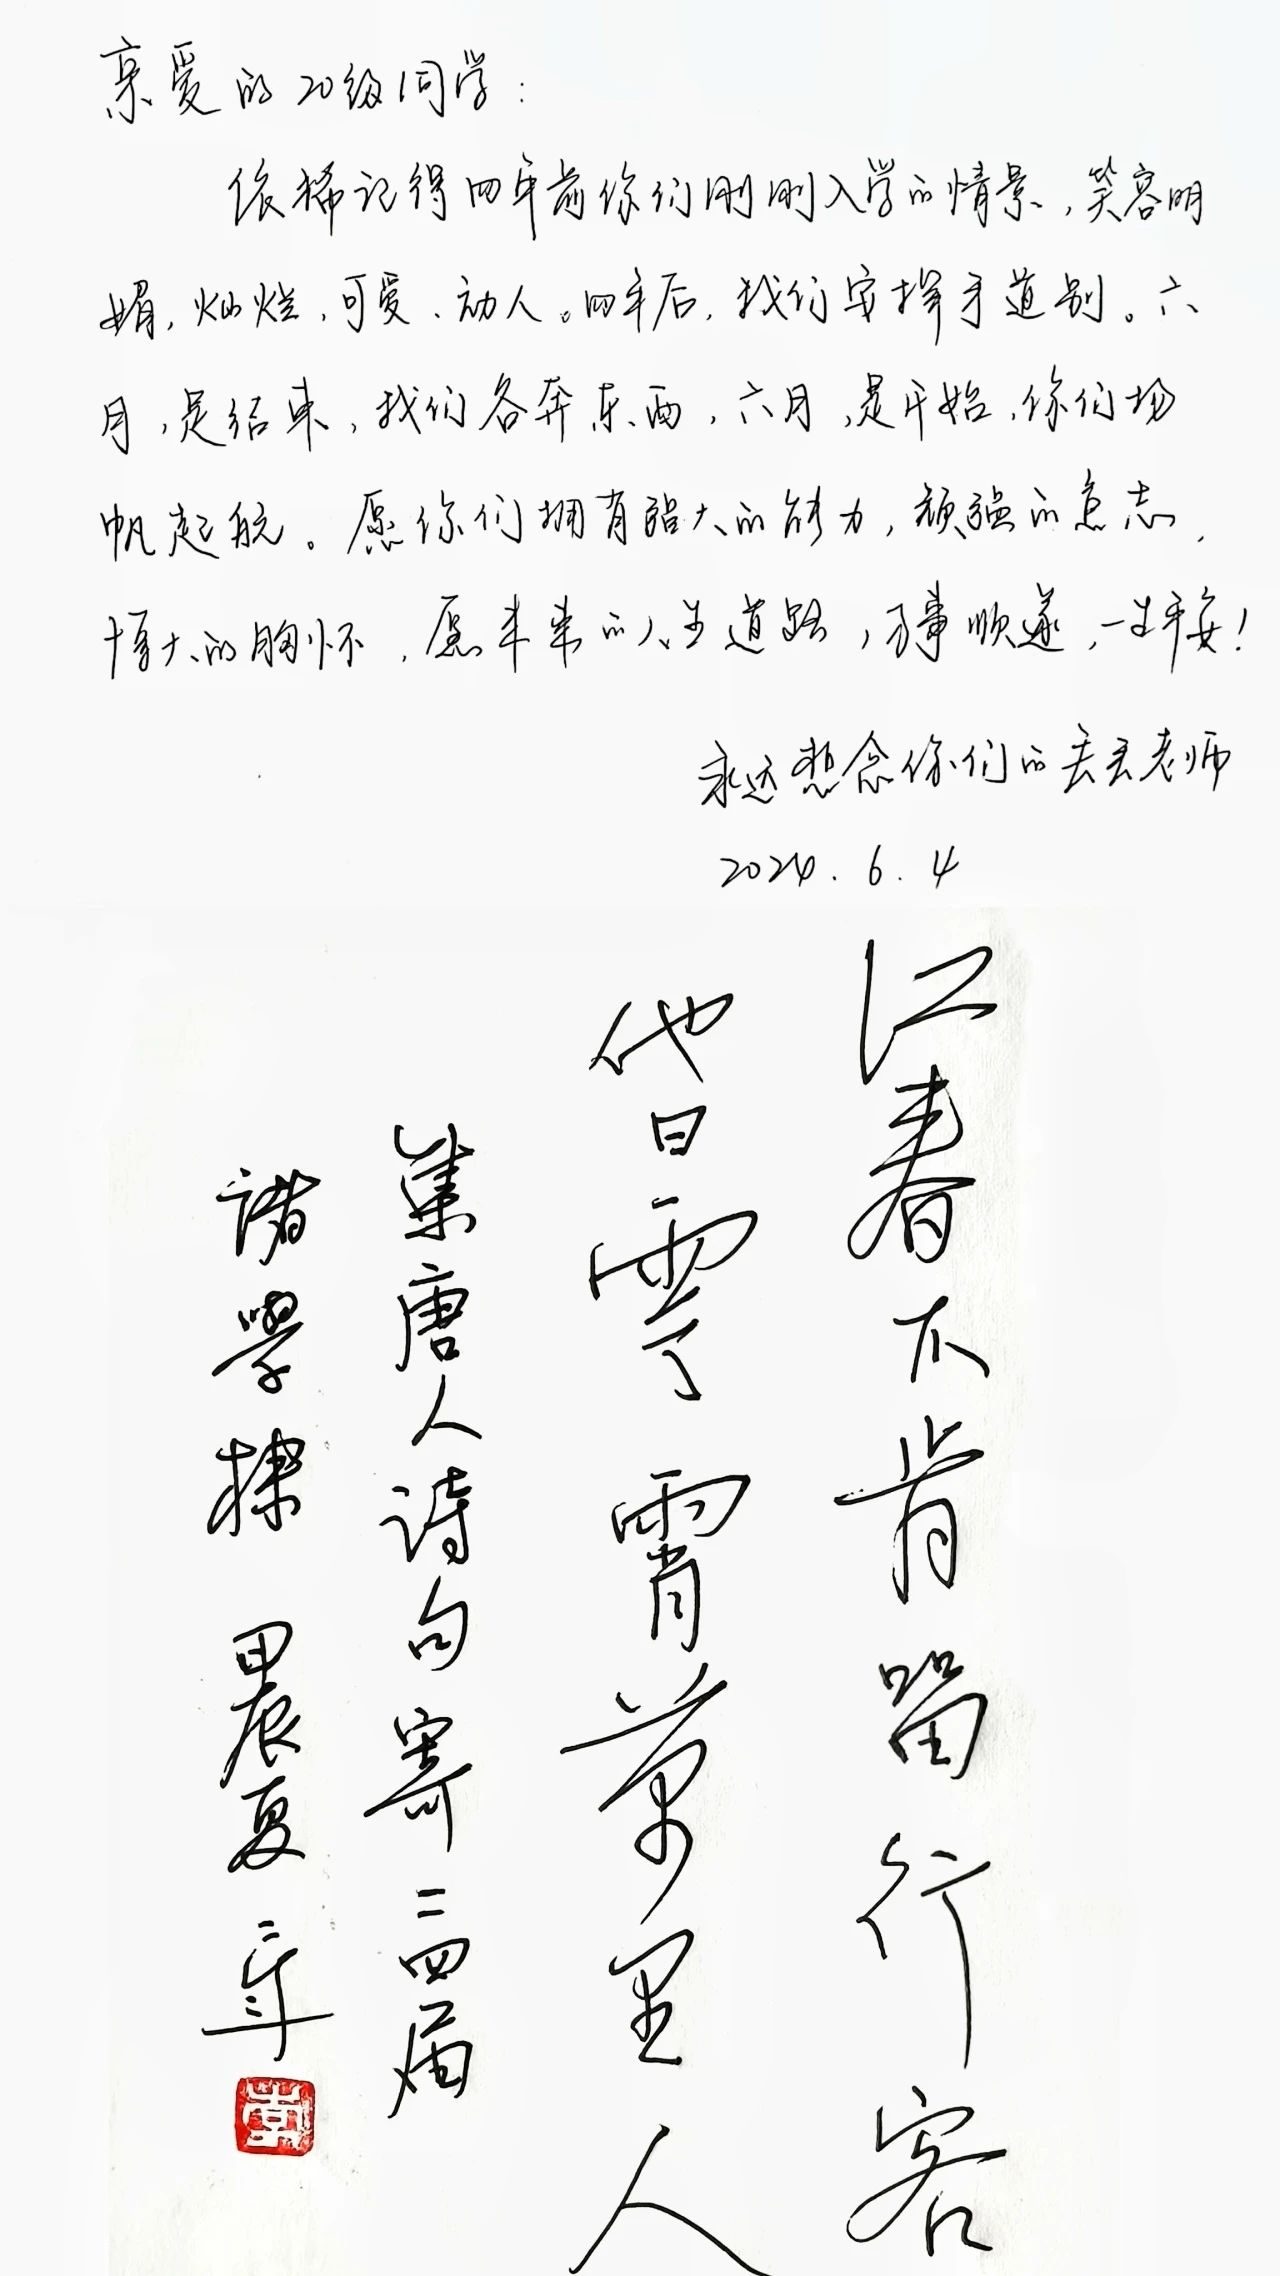 亲爱的20级同学：
依稀记得四年前你们刚刚入学的情景，笑容明
媚，灿烂，可爱、动人。四年后，我们安择手道别。六
月，是结束，我们各奔东西，六月，是开始，你们扬
帆起航。愿你们拥有强大的能力，顽强的意志，
博大的胸怀，愿未来的人生道路，万事顺遂，一生平安！
永远想念你们的丢丢老师
2024.6.4
江春不肯留行客
他日雲霄萬里人
集唐人詩句寄二四届
諸學棣 甲辰夏